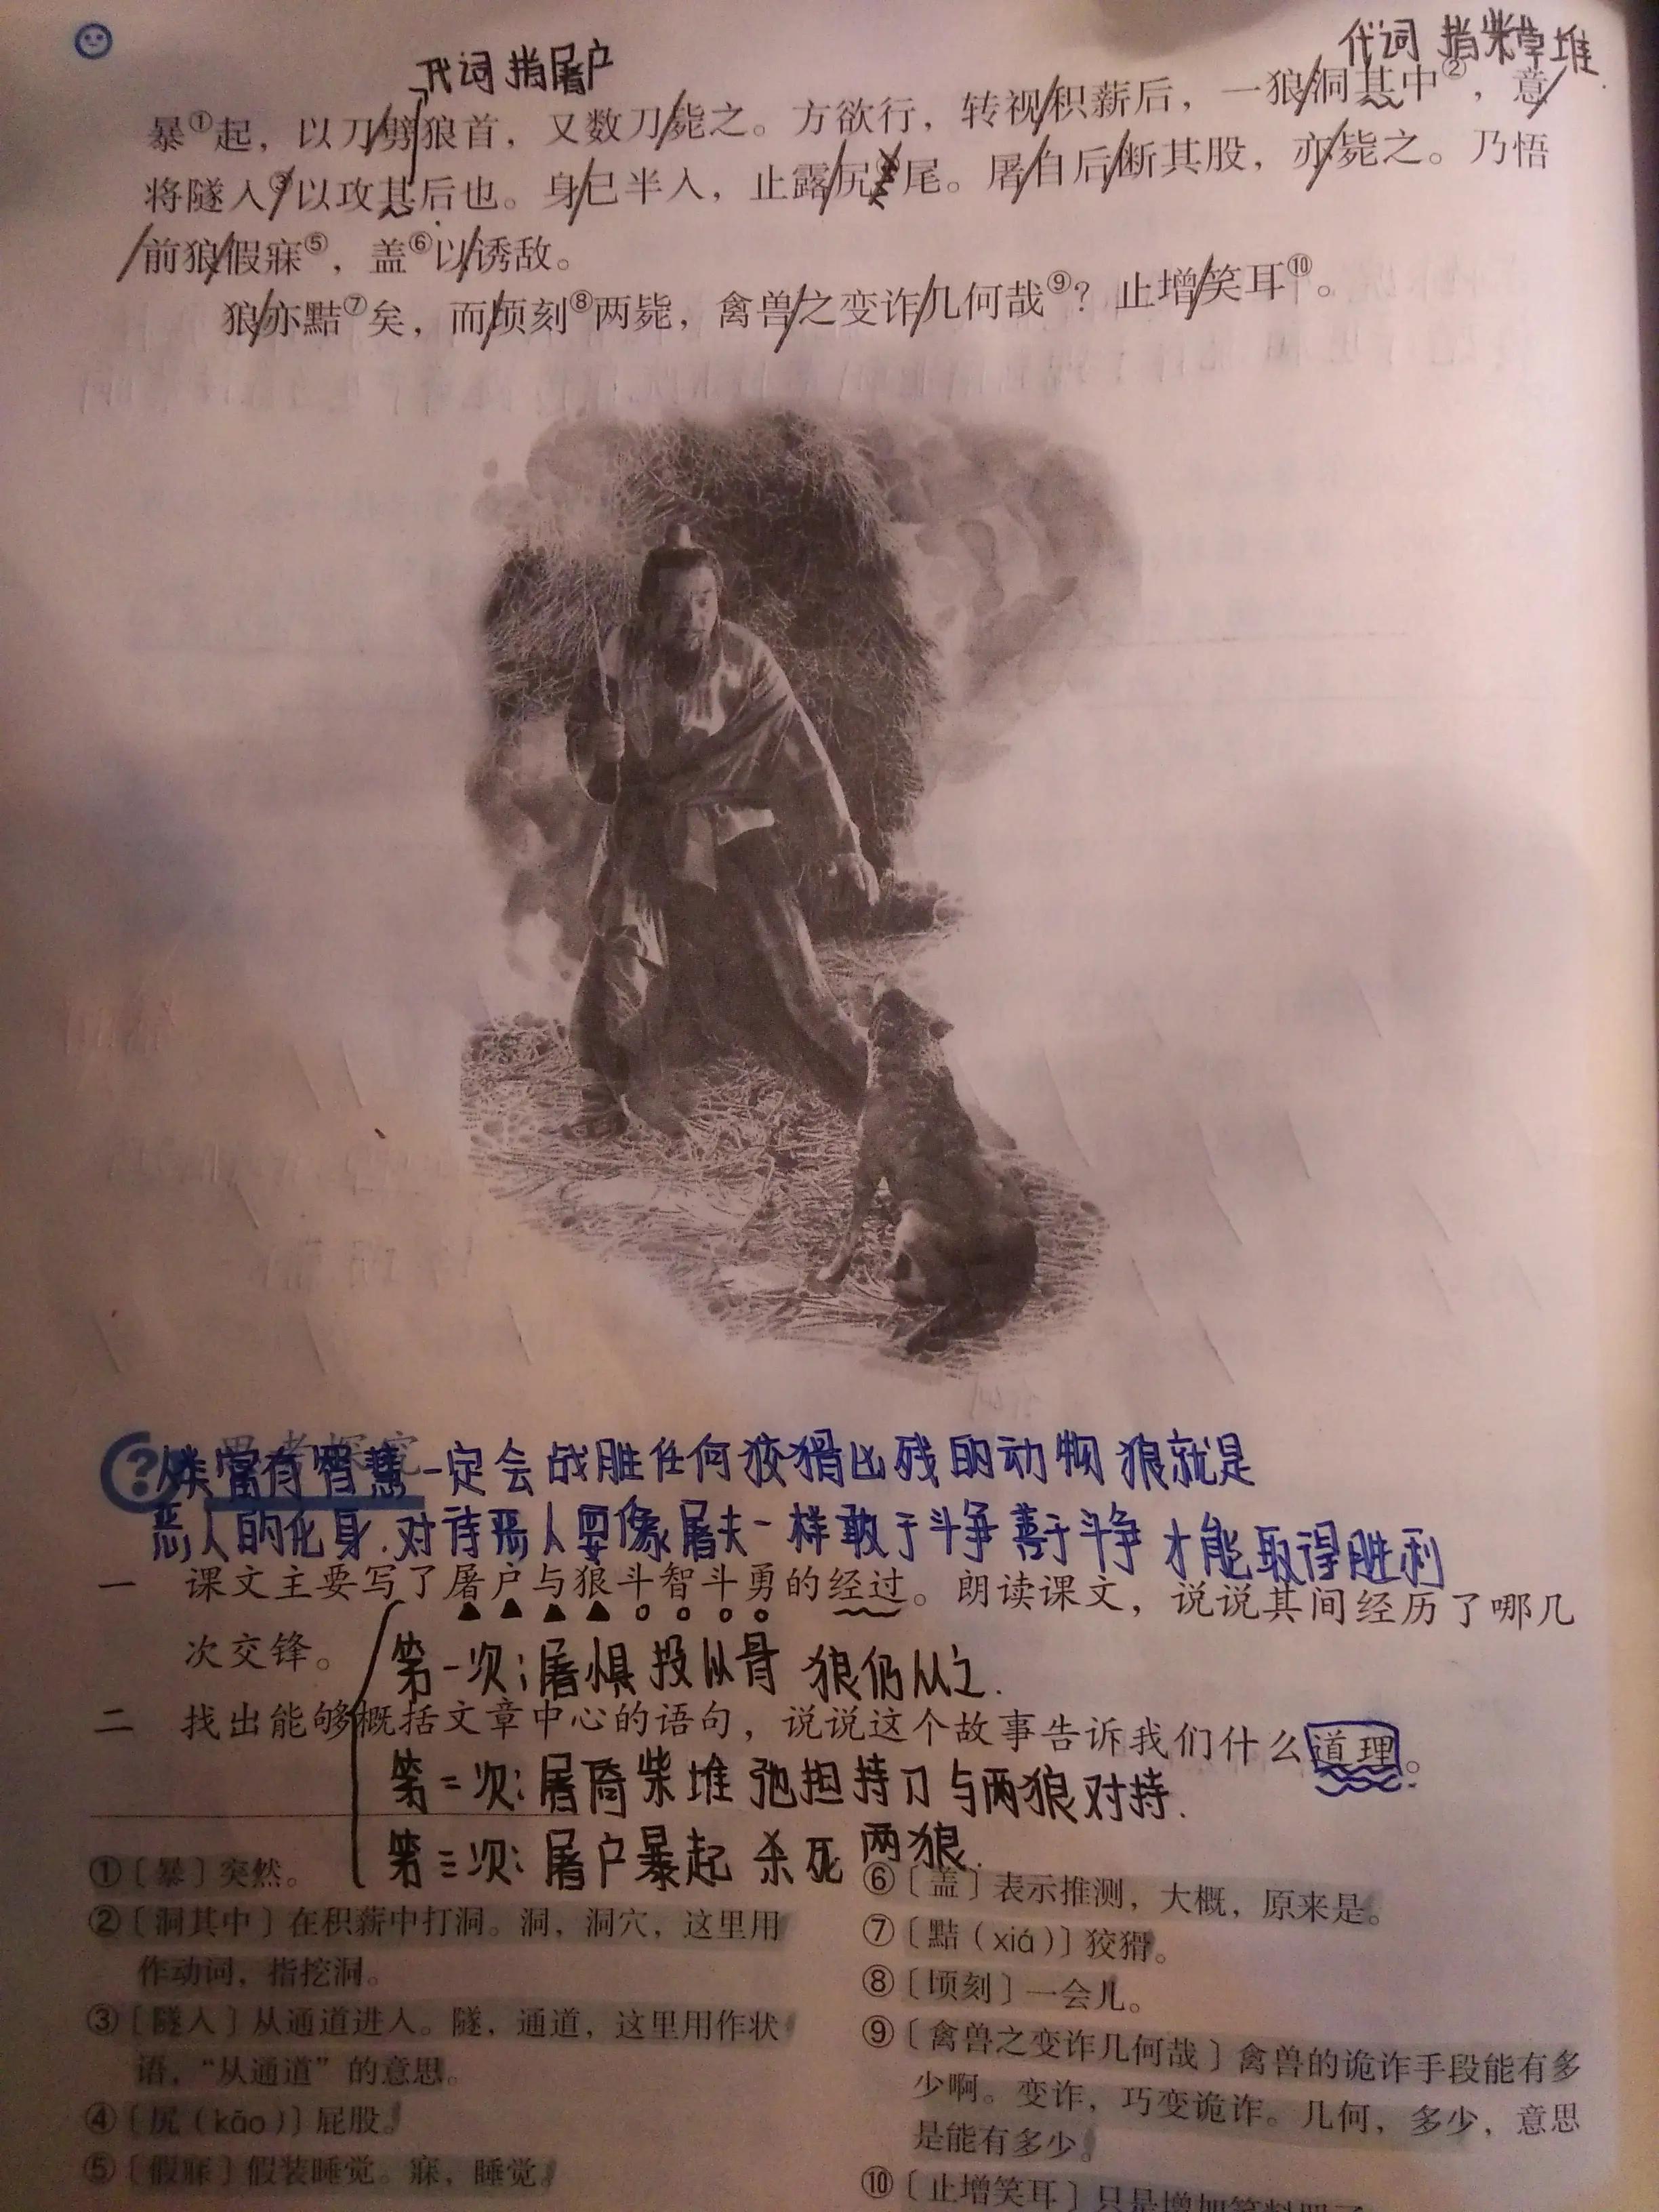 代词 指屠户
代词 指柴草堆
暴①起，以刀劈狼首，又数刀毙之。方欲行，转视积薪后，一狼洞其中②，意
将隧入③以攻其后也。身已半入，止露尻尾。屠自后断其股，亦毙之。乃悟
前狼假寐⑤，盖⑥以诱敌。
狼亦黠⑦矣，而顷刻⑧两毙，禽兽之变诈几何哉⑨？止增笑耳⑩。
思考探究
人类富有智慧一定会战胜任何狡猾凶残的动物 狼就是
恶人的化身.对待恶人要像屠夫一样敢于斗争善于斗争 才能取得胜利
一 课文主要写了屠户与狼斗智斗勇的经过。朗读课文，说说其间经历了哪几
次交锋。
第一次:屠惧投以骨 狼仍从之.
二 找出能够概括文章中心的语句，说说这个故事告诉我们什么道理。
第二次:屠倚柴堆 弛担持刀与两狼对持.
第三次:屠户暴起 杀死两狼.
①〔暴〕突然。
②〔洞其中〕在积薪中打洞。洞，洞穴，这里用
作动词，指挖洞。
③〔隧入〕从通道进入。隧，通道，这里用作状
语，“从通道”的意思。
④〔尻（kāo）〕屁股。
⑤〔假寐〕假装睡觉。寐，睡觉。
⑥〔盖〕表示推测，大概，原来是。
⑦〔黠（xiá）〕狡猾。
⑧〔顷刻〕一会儿。
⑨〔禽兽之变诈几何哉〕禽兽的诡诈手段能有多
少啊。变诈，巧变诡诈。几何，多少，意思
是能有多少。
⑩〔止增笑耳〕只是增加笑料罢了